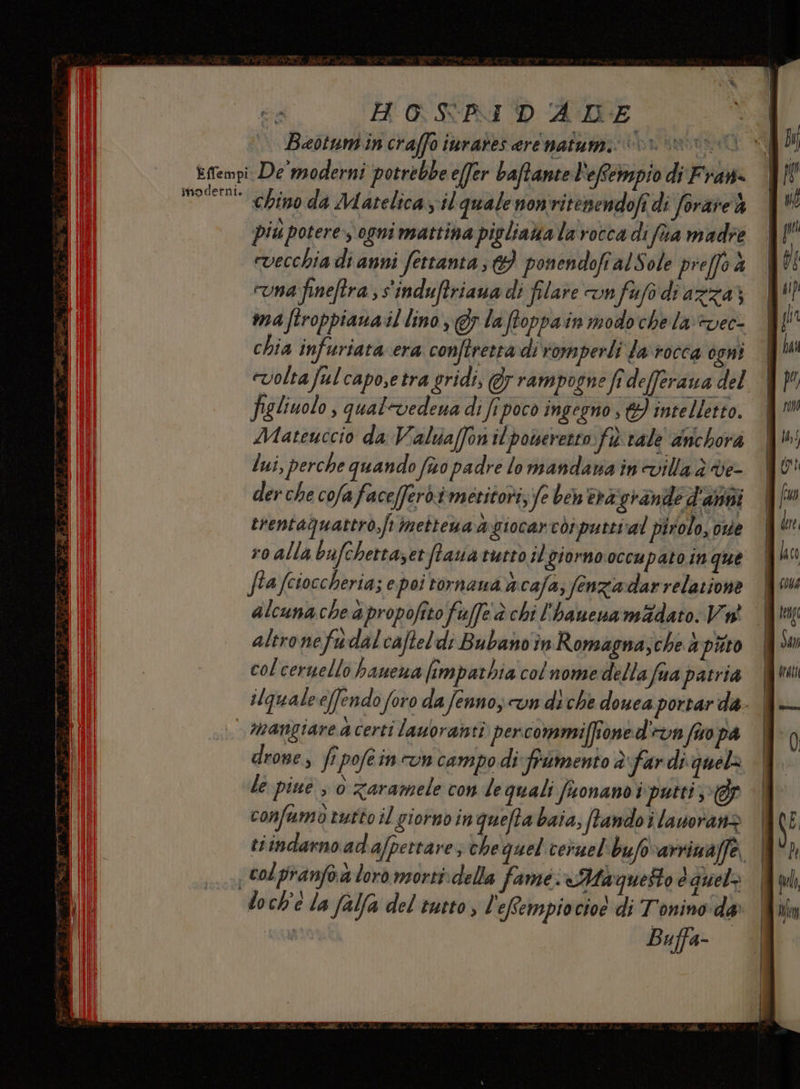 HOSPIDALE
Bæotum in crasso iurares aere natum.
Essempi De'moderni potrebbe esser bastante l'essempio di Fran-
moderni. chino da Matelica, il quale non ritenendosi di forare à
più potere, ogni mattina pigliaua la rocca di sua madre
vecchia di anni settanta, & ponendosi al Sole presso à
vna finestra, s'industriaua di filare con fuso di azza;
ma stroppiaua il lino, & la stoppa in modo che la vec-
chia infuriata era constretta di romperli la rocca ogni
volta sul capo, e tra gridi, & rampogne si desseraua del
figliuolo, qual vedeua di sì poco ingegno, & intelletto.
Mateuccio da Valuasson il poueretto fù tale anchora
lui, perche quando suo padre lo mandaua in villa à ve-
der che cosa facessero i metitori, se ben era grande d'anni
trentaquattro, si metteua à giocar cò putti al pirolo, oue
ro alla buschetta, et staua tutto il giorno occupato in que
sta scioccheria; e poi tornaua à casa, senza dar relatione
alcuna che à proposito fusse à chi l'haueua mãdato. Vn'
altro ne fù dal castel di Bubano in Romagna, che à pũto
col ceruello haueua simpathia col nome della sua patria
ilquale essendo foro da senno, vn dì che douea portar da
mangiare à certi lauoranti per commissione d'vn suo pa
drone, si pose in vn campo di frumento à far di quel-
le piue, ò zaramele con le quali suonano i putti, &
consumò tutto il giorno in questa baia, stando i lauoran-
ti indarno ad aspettare, che quel ceruel buso arriuasse
col pranso à loro morti della fame. Ma questo è quel-
lo ch'è la salsa del tutto, l'essempio cioè di Tonino da
Buffa-